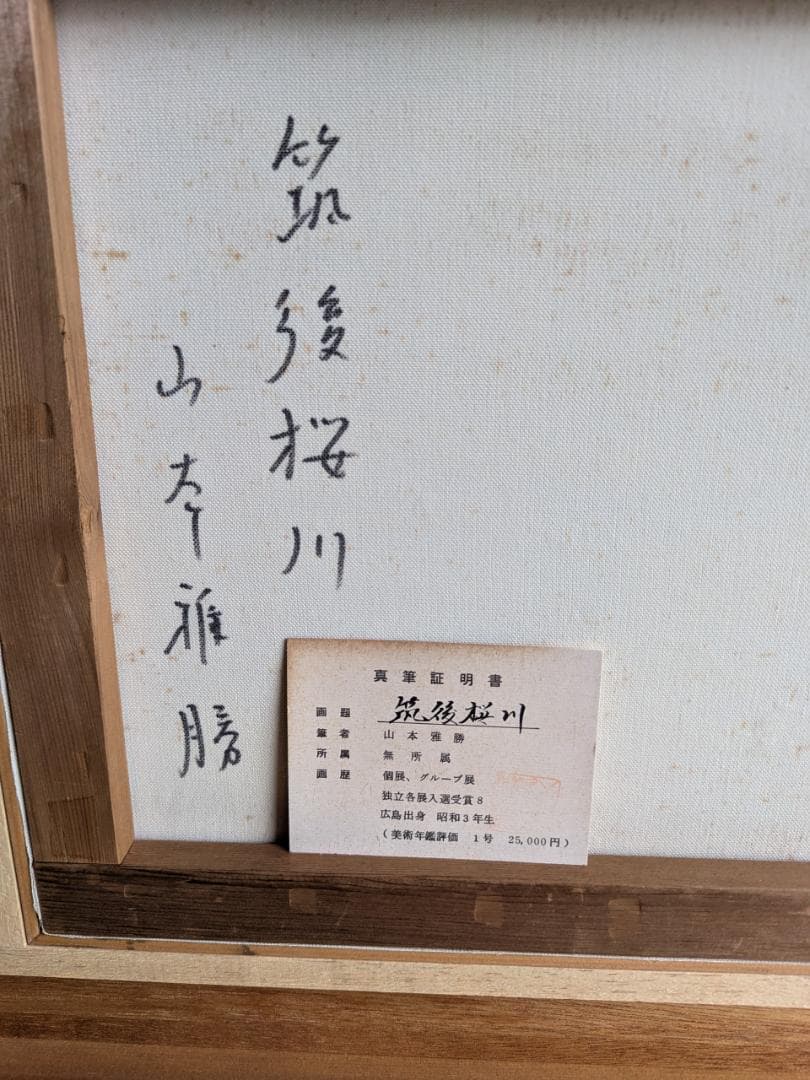 筑後桜川
山本雅勝
真筆証明書
画題 筑後桜川
筆者 山本雅勝
所属 無所属
画歴 個展、グループ展
独立各展入選受賞8
広島出身 昭和3年生
(美術年鑑評価 1号 25,000円)